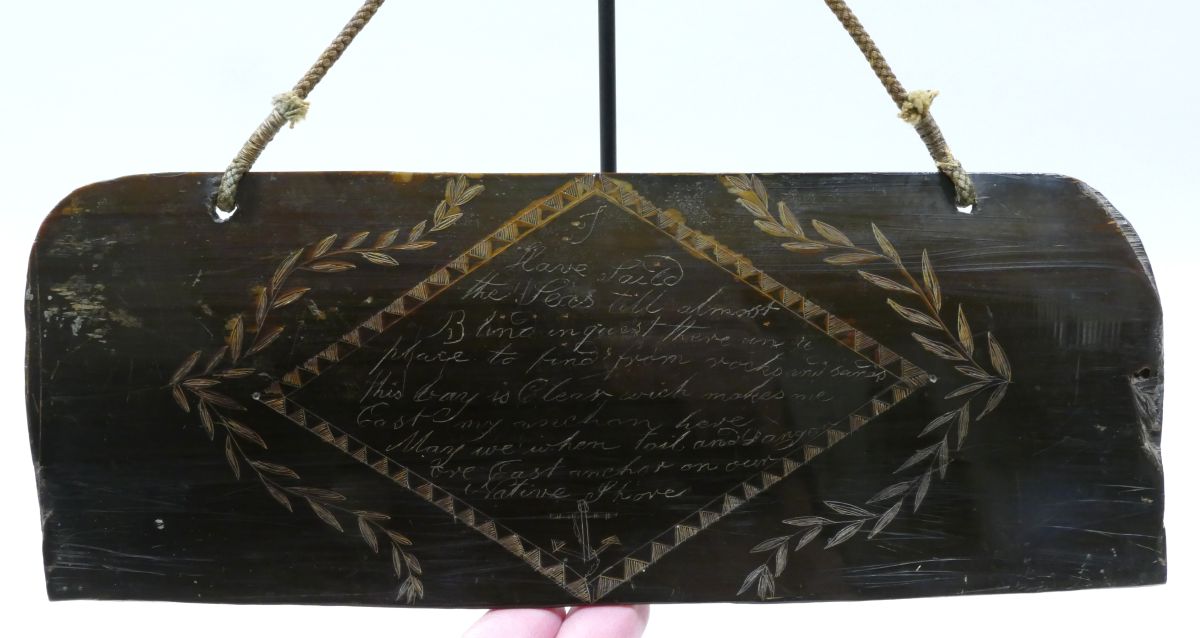 I
Have Saild
the Seas till almost
Blind in quest there un a
place to find from rocks and sands
this bay is Clear wich makes me
Cast my anchor here
May we when toil and dangers
Cast anchor on our
Native Shore